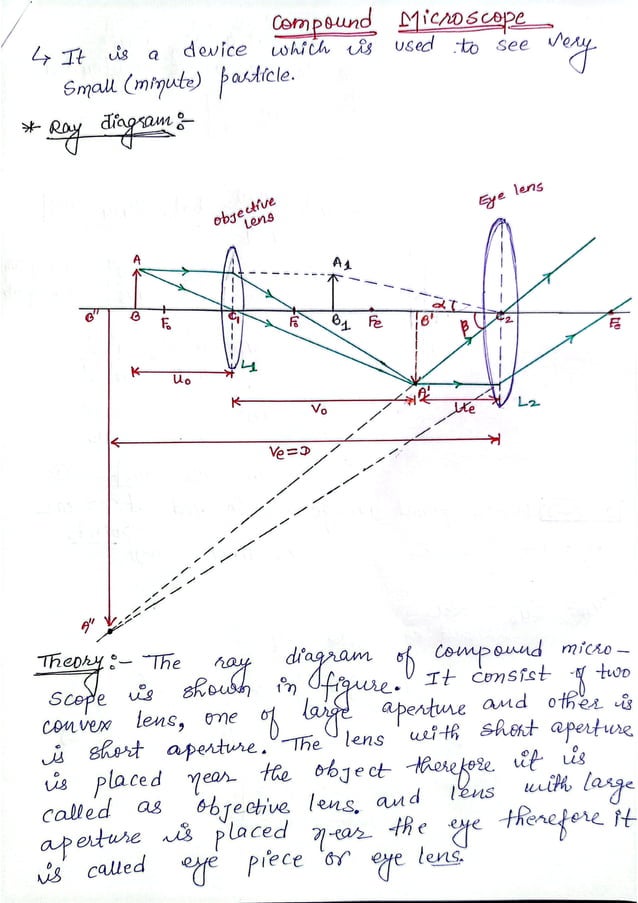 Compound Microscope
↳ It is a device which is used to see very
small (minute) particle.
* Ray diagram:-
objective
lens
Eye lens
A
A1
α
B"
B
Fo
C1
Fo
B1
Fe
B'
β
C2
Fe
L1
uo
A'
vo
ue
L2
ve=D
A"
Theory:- The ray diagram of compound micro-
scope is shown in figure. It consist of two
convex lens, one of large aperture and other is
is short aperture. The lens with short aperture
is placed near the object therefore it is
called as objective lens. and lens with large
aperture is placed near the eye therefore it
is called eye piece or eye lens.